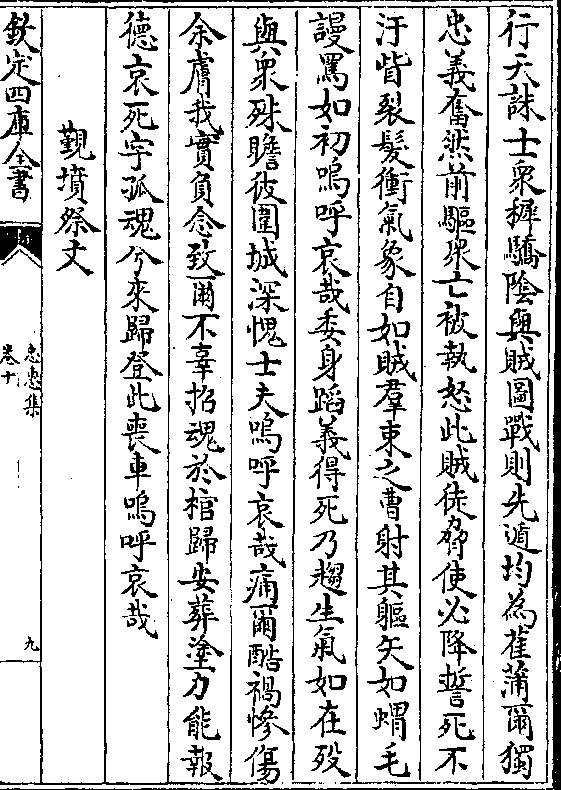 行天誅士衆墀驕陰與賊圖戰則先遁均為萑蒲爾獨
忠義奮然前驅衆亡被執怒此賊徒脅使必降誓死不
汙眥裂髮衝氣象自如賊羣束之曹射其軀矢如蝟毛
謾罵如初嗚呼哀哉委身蹈義得死乃趨生氣如在殁
與衆殊瞻彼圍城深愧士夫嗚呼哀哉痛爾酷禍慘傷
余膚我實負念致爾不辜招魂於棺歸安葬塗力能報
德哀死字孤魂兮來歸登此喪車嗚呼哀哉
覲墳祭文
欽定四庫全書
忠惠集
卷十
九